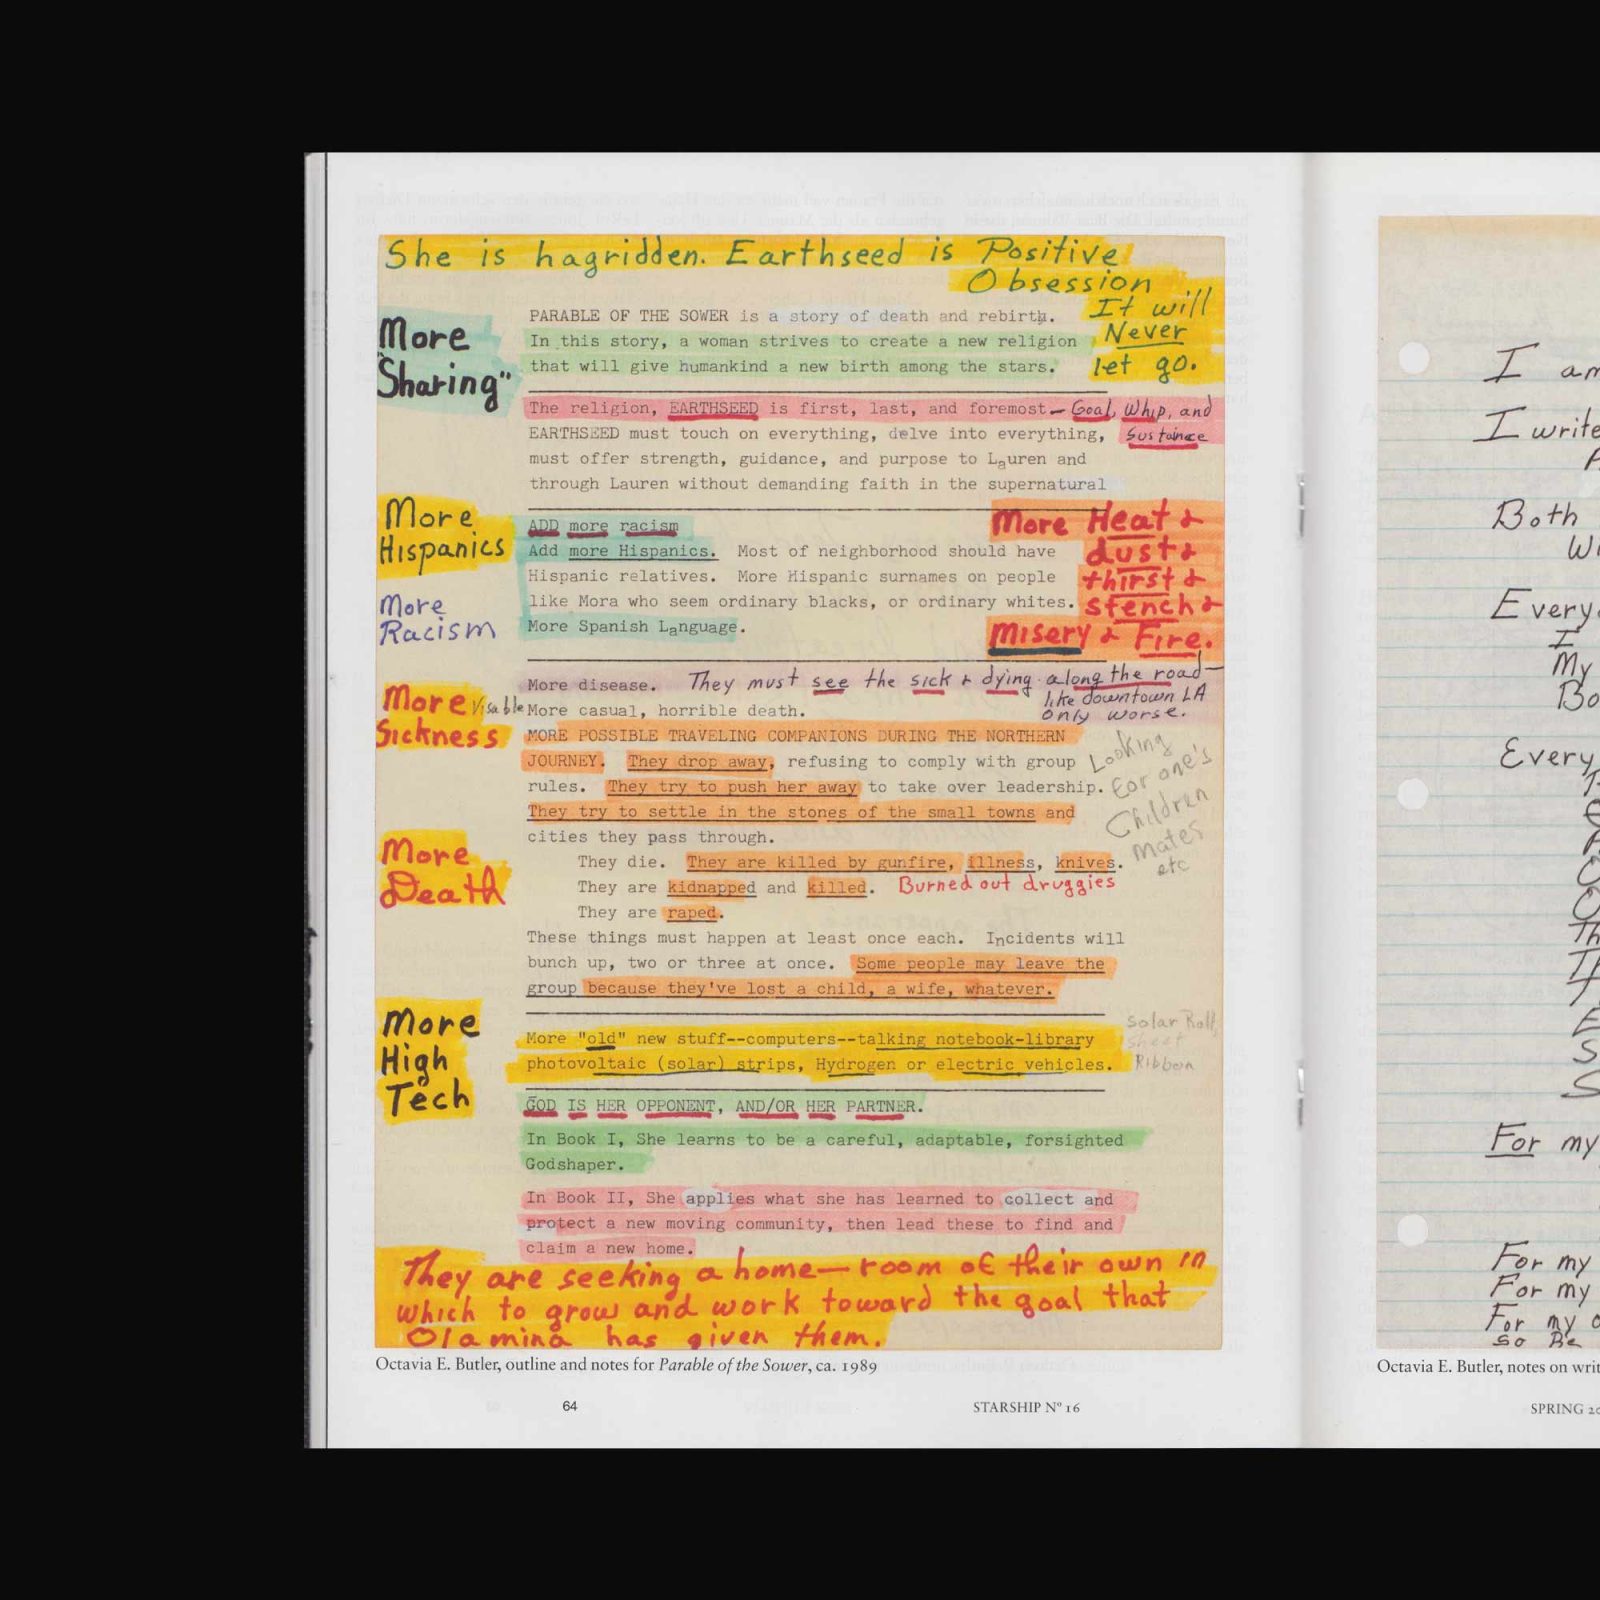 She is hagridden. Earthseed is Positive
Obsession
It will
Never
let go.
More
"Sharing"
PARABLE OF THE SOWER is a story of death and rebirth.
In this story, a woman strives to create a new religion
that will give humankind a new birth among the stars.
The religion, EARTHSEED is first, last, and foremost— Goal, Whip, and
EARTHSEED must touch on everything, delve into everything, Sustaince
must offer strength, guidance, and purpose to Lauren and
through Lauren without demanding faith in the supernatural
More
Hispanics
More
Racism
ADD more racism
Add more Hispanics. Most of neighborhood should have
Hispanic relatives. More Hispanic surnames on people
like Mora who seem ordinary blacks, or ordinary whites.
More Spanish Language.
More Heat &
dust &
thirst &
stench &
misery & Fire.
More Visable
Sickness
More disease. They must see the sick & dying along the road—
like downtown LA
only worse.
More casual, horrible death.
MORE POSSIBLE TRAVELING COMPANIONS DURING THE NORTHERN
JOURNEY. They drop away, refusing to comply with group
rules. They try to push her away to take over leadership.
They try to settle in the stones of the small towns and
cities they pass through.
Looking
For one's
Children
mates
etc
More
Death
They die. They are killed by gunfire, illness, knives.
They are kidnapped and killed. Burned out druggies
They are raped.
These things must happen at least once each. Incidents will
bunch up, two or three at once. Some people may leave the
group because they've lost a child, a wife, whatever.
More
High
Tech
More "old" new stuff--computers--talking notebook-library
photovoltaic (solar) strips, Hydrogen or electric vehicles.
Solar Roll
sheet
Ribbon
GOD IS HER OPPONENT, AND/OR HER PARTNER.
In Book I, She learns to be a careful, adaptable, forsighted
Godshaper.
In Book II, She applies what she has learned to collect and
protect a new moving community, then lead these to find and
claim a new home.
They are seeking a home—room of their own in
which to grow and work toward the goal that
Olamina has given them.
Octavia E. Butler, outline and notes for Parable of the Sower, ca. 1989
64
STARSHIP Nº 16
I am
I write
Both
Every
I
My
Bo
Every
For my
For my
For my
For my
so Be
Octavia E. Butler, notes on writ
SPRING 20